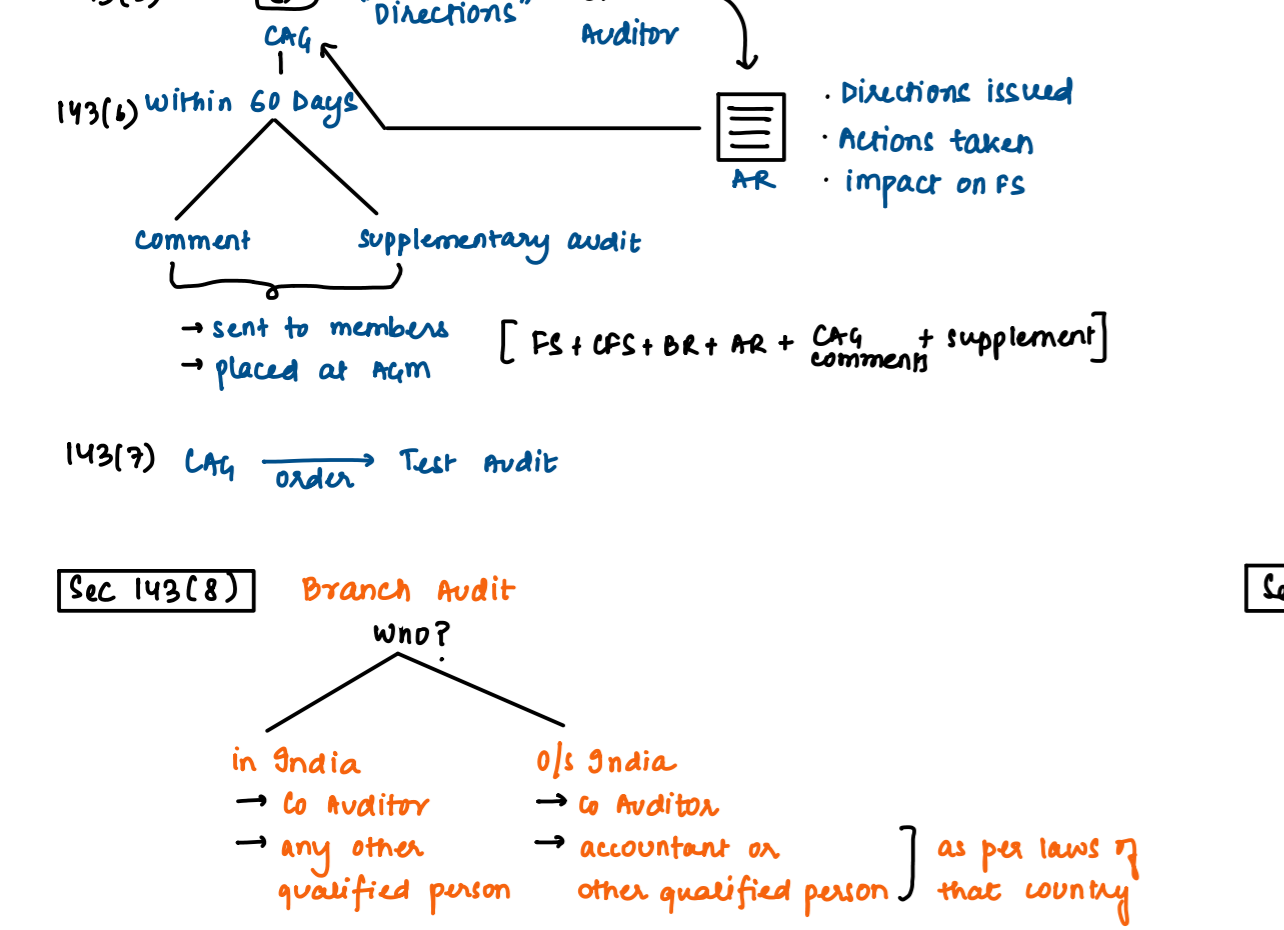 "Directions"
CAG
Auditor
143(6) Within 60 Days
• Directions issued
• Actions taken
AR
• impact on FS
Comment
supplementary audit
→ sent to members
→ placed at AGM
[FS + CFS + BR + AR + CAG comments + supplement]
143(7) CAG order → Test Audit
Sec 143(8) Branch Audit
Who?
in India
→ Co Auditor
→ any other
qualified person
O/s India
→ Co Auditor
→ accountant or
other qualified person
as per laws of
that country